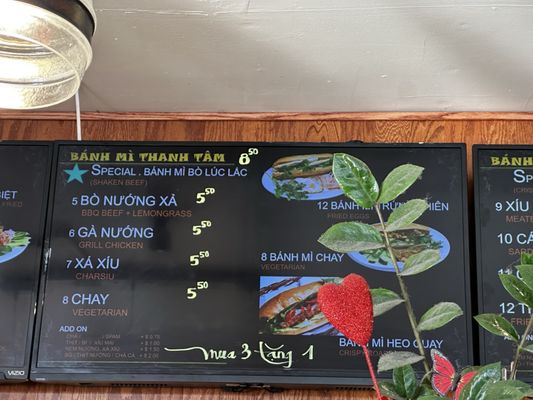 BÁNH MÌ THANH TÂM
SPECIAL . BÁNH MÌ BÒ LÚC LẮC 8 50
(SHAKEN BEEF)
5 BÒ NƯỚNG XẢ 5 50
BBQ BEEF + LEMONGRASS
6 GÀ NƯỚNG 5 50
GRILL CHICKEN
7 XÁ XÍU 5 50
CHARSIU
8 CHAY 5 50
VEGETARIAN
ADD ON
+ $ 0.75
+ $ 1.00
NEM NƯỚNG, XÁ XÍU + $ 1.50
+ $ 2.00
mua 3 - tặng 1
12 BÁNH MÌ TRỨNG CHIÊN
FRIED EGGS
8 BÁNH MÌ CHAY
VEGETARIAN
BÁNH MÌ HEO QUAY
CRISPY
VIZIO
BIỆT
FRIED
BÁNH M
SP
(CRIS
9 XÍU
MEATB
10 CÁ
SARD
11
12 T
FRIE